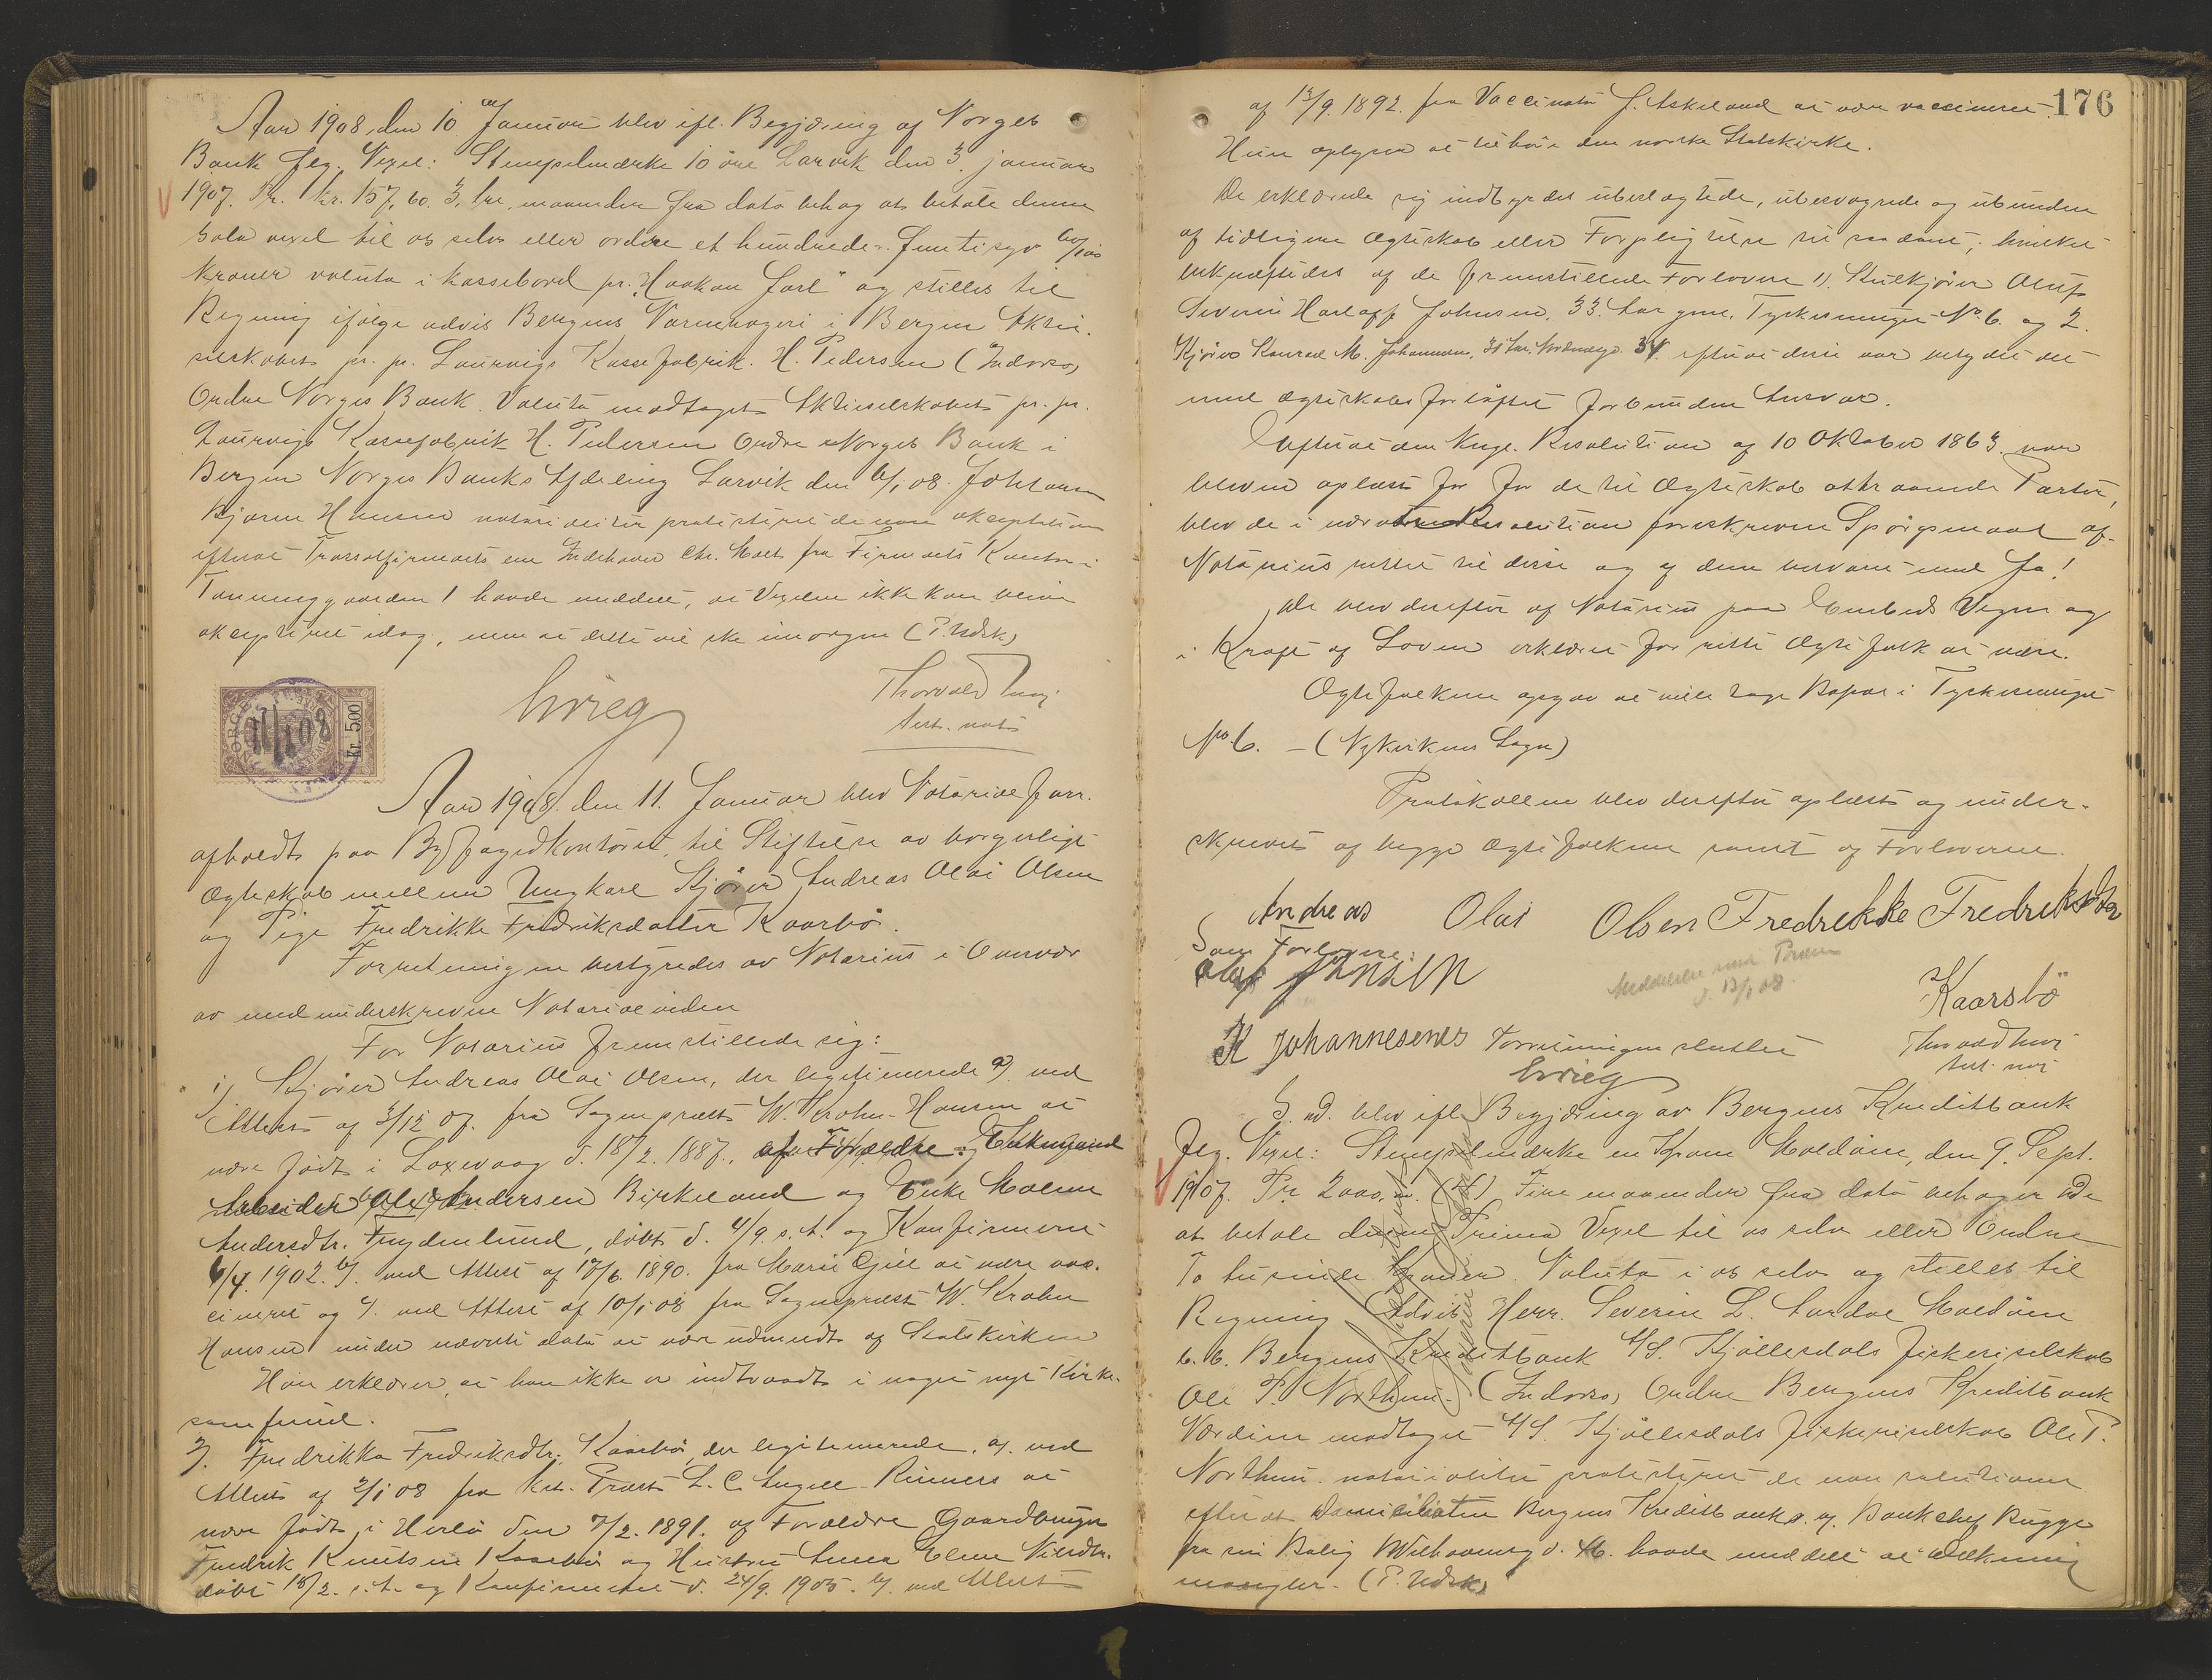 Aar 1908, den 10 Januar blev ifl. Begjæring af Norges
Bank flg. Vexel: Stempelmærke 10 øre Larvik den 3. januar
1907. Pr. kr. 157,60. 3, tre, maaneder fra dato behag at betale denne
Sola vexel til os selv eller ordre et hundrede femtisyv 60/100
kroner valuta i kassebord pr. "Haakon Jarl" og stilles til
Regning ifølge advis Bergens Varemageri i Bergen Aktie-
selskabet pr. pr. Laurvigs Kassefabrik. H. Pedersen (Indorso,
Ordre Norges Bank. Valuta modtaget Aktieselskabet pr. pr.
Laurvigs Kassefabrik H. Pedersen Ordre Norges Bank i
Bergen Norges Banks Afdeling Larvik den 6/1 08. Johannsen
Bjarne Hansen notarialiter protesteret de non akceptatione
efterat Trassatfirmaets ene Indehaver Chr. Holt fra Firmaets Kontor i
Tanninggaarden 1 havde meddelt, at Vexelen ikke kan blive
akcepteret idag, men at dette vil ske imorgen (P. Udsk)
NORGE 11/1 08 kr. 5.00
Grieg
Thorvald
test. not.
Aar 1908. den 11. Januar blev Notarialforr.
afholdt paa Byfogedkontoret, til Stiftelse av borgerligt
Ægteskab mellem Ungkarl Kjører Andreas Olai Olsen
og Pige Fredrikke Fredriksdatter Kaarbø.
Forretningen bestyredes av Notarius i Overvær
av medunderskrevne Notarialvidne
For Notarius fremstillede sig:
1) Kjører Andreas Olai Olsen, der legitimerede a) ved
Attest af 3/12 07. fra Sognepræst W. Krohn-Hansen at
være født i Laxevaag d. 18/2. 1887., af Forældre: Enkemand
Arbeider Ole Andersen Birkeland og Enke Malene
Andersdtr. Frydenlund, døbt d. 4/9 s. A. og Konfirmeret
6/4. 1902. b). ved Attest af 17/6. 1890. fra Marie Gjil at være vac-
cineret og c). ved Attest af 10/1 08 fra Sognepræst W. Krohn
Hansen under nævnte dato at være udmeldt af Statskirken
Han erklærer, at han ikke er indtraadt i noget nyt Kirke-
samfund.
2). Fredrikka Fredriksdtr. Kaarbø, der legitimerede, a). ved
Attest af 2/1 08 fra Præst L. C. Angell at
være født i Herlø den 7/2. 1891. af Forældre Gaardbruger
Fredrik Knutsen Kaarbø og Hustru Anna Elene Nilsdtr.
døbt 18/2. s. A. og Konfirmeret d. 24/9. 1905. b). ved Attest
176
af 13/9. 1892. fra Vaccinatør J. Askeland at være vaccineret.
Hun oplyser at tilhøre den norske Statskirke.
De erklærede sig indbyrdes ubeslægtede, ubesvogrede og ubundne
af tidligere Ægteskab eller Forpligtelse til saadant, hvilket
bekræftedes af de fremstillede Forlovere 1). Kulkjører Oluf
Severin Harloff Johnsen, 33. Aar gml. Tyskesmuget No. 6. og 2.
Kjører Konrad M. Johannesen, 31 Aar, Nordnesgd. 34 efterat disse var betydet det
med Ægteskabsforløftet forbundne Ansvar.
Efterat den Kngl. Resolution af 10 Oktober 1863. var
bleven oplæst for for de til Ægteskab attraaende Parter,
blev de i nævnte Resolution foreskrevne Spørgsmaal af
Notarius rettet til disse og af dem besvaret med Ja!
De blev derefter af Notarius paa Embeds Vegne og
i Kraft af Loven erklæret for rette Ægtefolk at være.
Ægtefolkene opgav at ville tage Bopæl i Tyskesmuget
No. 6. – (Nykirkens Sogn)
Protokollen blev derefter oplæst og under-
skrevet af begge Ægtefolkene samt af Forloverne.
Andreas Olai Olsen Fredrekke Fredreksdtr
Som Forlovere:
Oluf Jonsen
Meddelelse med Præsten
d. 13/1 08.
Kaarsbö
K Johannesenes Forretningen sluttet
Thorvald
test. not
Grieg
S. D. blev ifl. Begjæring av Bergens Kreditbank
flg. Vexel: Stempelmærke en Krone Maldøen, den 9. Sept.
1907. Pr 2000, (4) Fire maaneder fra dato behager De
at betale denne Prima Vexel til os selv eller Ordre
To tusinde Kroner. Valuta i os selv og stilles til
Regning Advis Herr. Severin L. Aardal Maldøen
b. b. Bergens Kreditbank A/S. Kjøllesdals Fiskeriselskab
Ole P. Northun. (Indorso, Ordre Bergens Kreditbank
Værdien modtaget A/S. Kjøllesdals Fiskeriselskab Ole P.
Northun. notarialiter protesteret de non solutione
efterat Domiciliaten Bergens Kreditbank v. Bankchef Bugge
fra sin Bolig havde meddelt at Dækning
mangler. (P. Udsk)